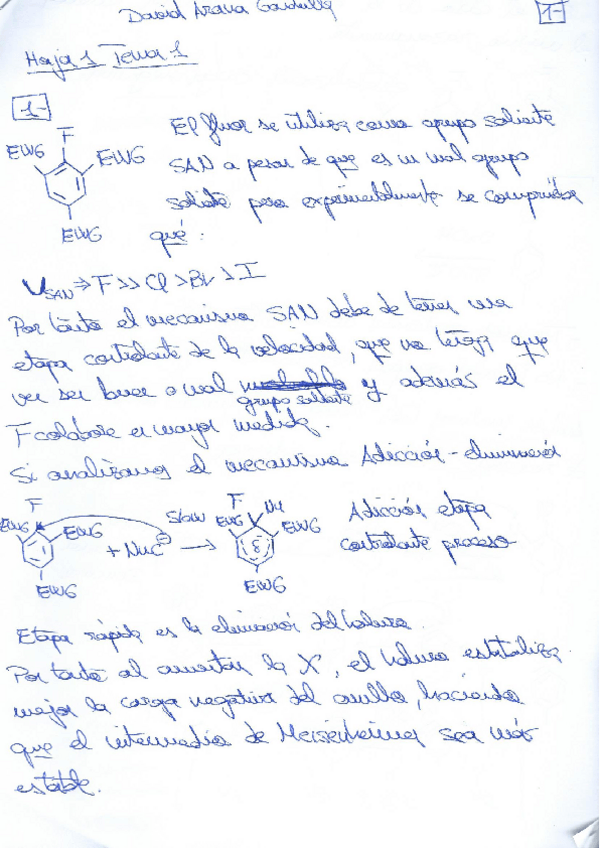 David Arana
1-
Hoja 1 Tema 1
1-
El fluor se utiliza como grupo saliente
F
EWG
EWG
SAN a pesar de que es un mal grupo
saliente pero experimentalmente se comprueba
EWG
que:
VSAN ⇒ F >> Cl > Br > I
Por tanto el mecanismo SAN debe de tener una
etapa controlante de la velocidad, que no tenga que
ver ser buen o mal grupo saliente y además el
F colabore en mayor medida.
Si analizamos el mecanismo Adicción - eliminación
F
EWG
EWG
EWG
+ Nuc ⊖
Slow
→
F
Nu
EWG
EWG
EWG
Adicción etapa
controlante proceso
Etapa rápida es la eliminación del haluro.
Por tanto al aumentar la X, el haluro estabiliza
mejor la carga negativa del anillo, haciendo
que el intermedio de Meisenheimer sea más
estable.